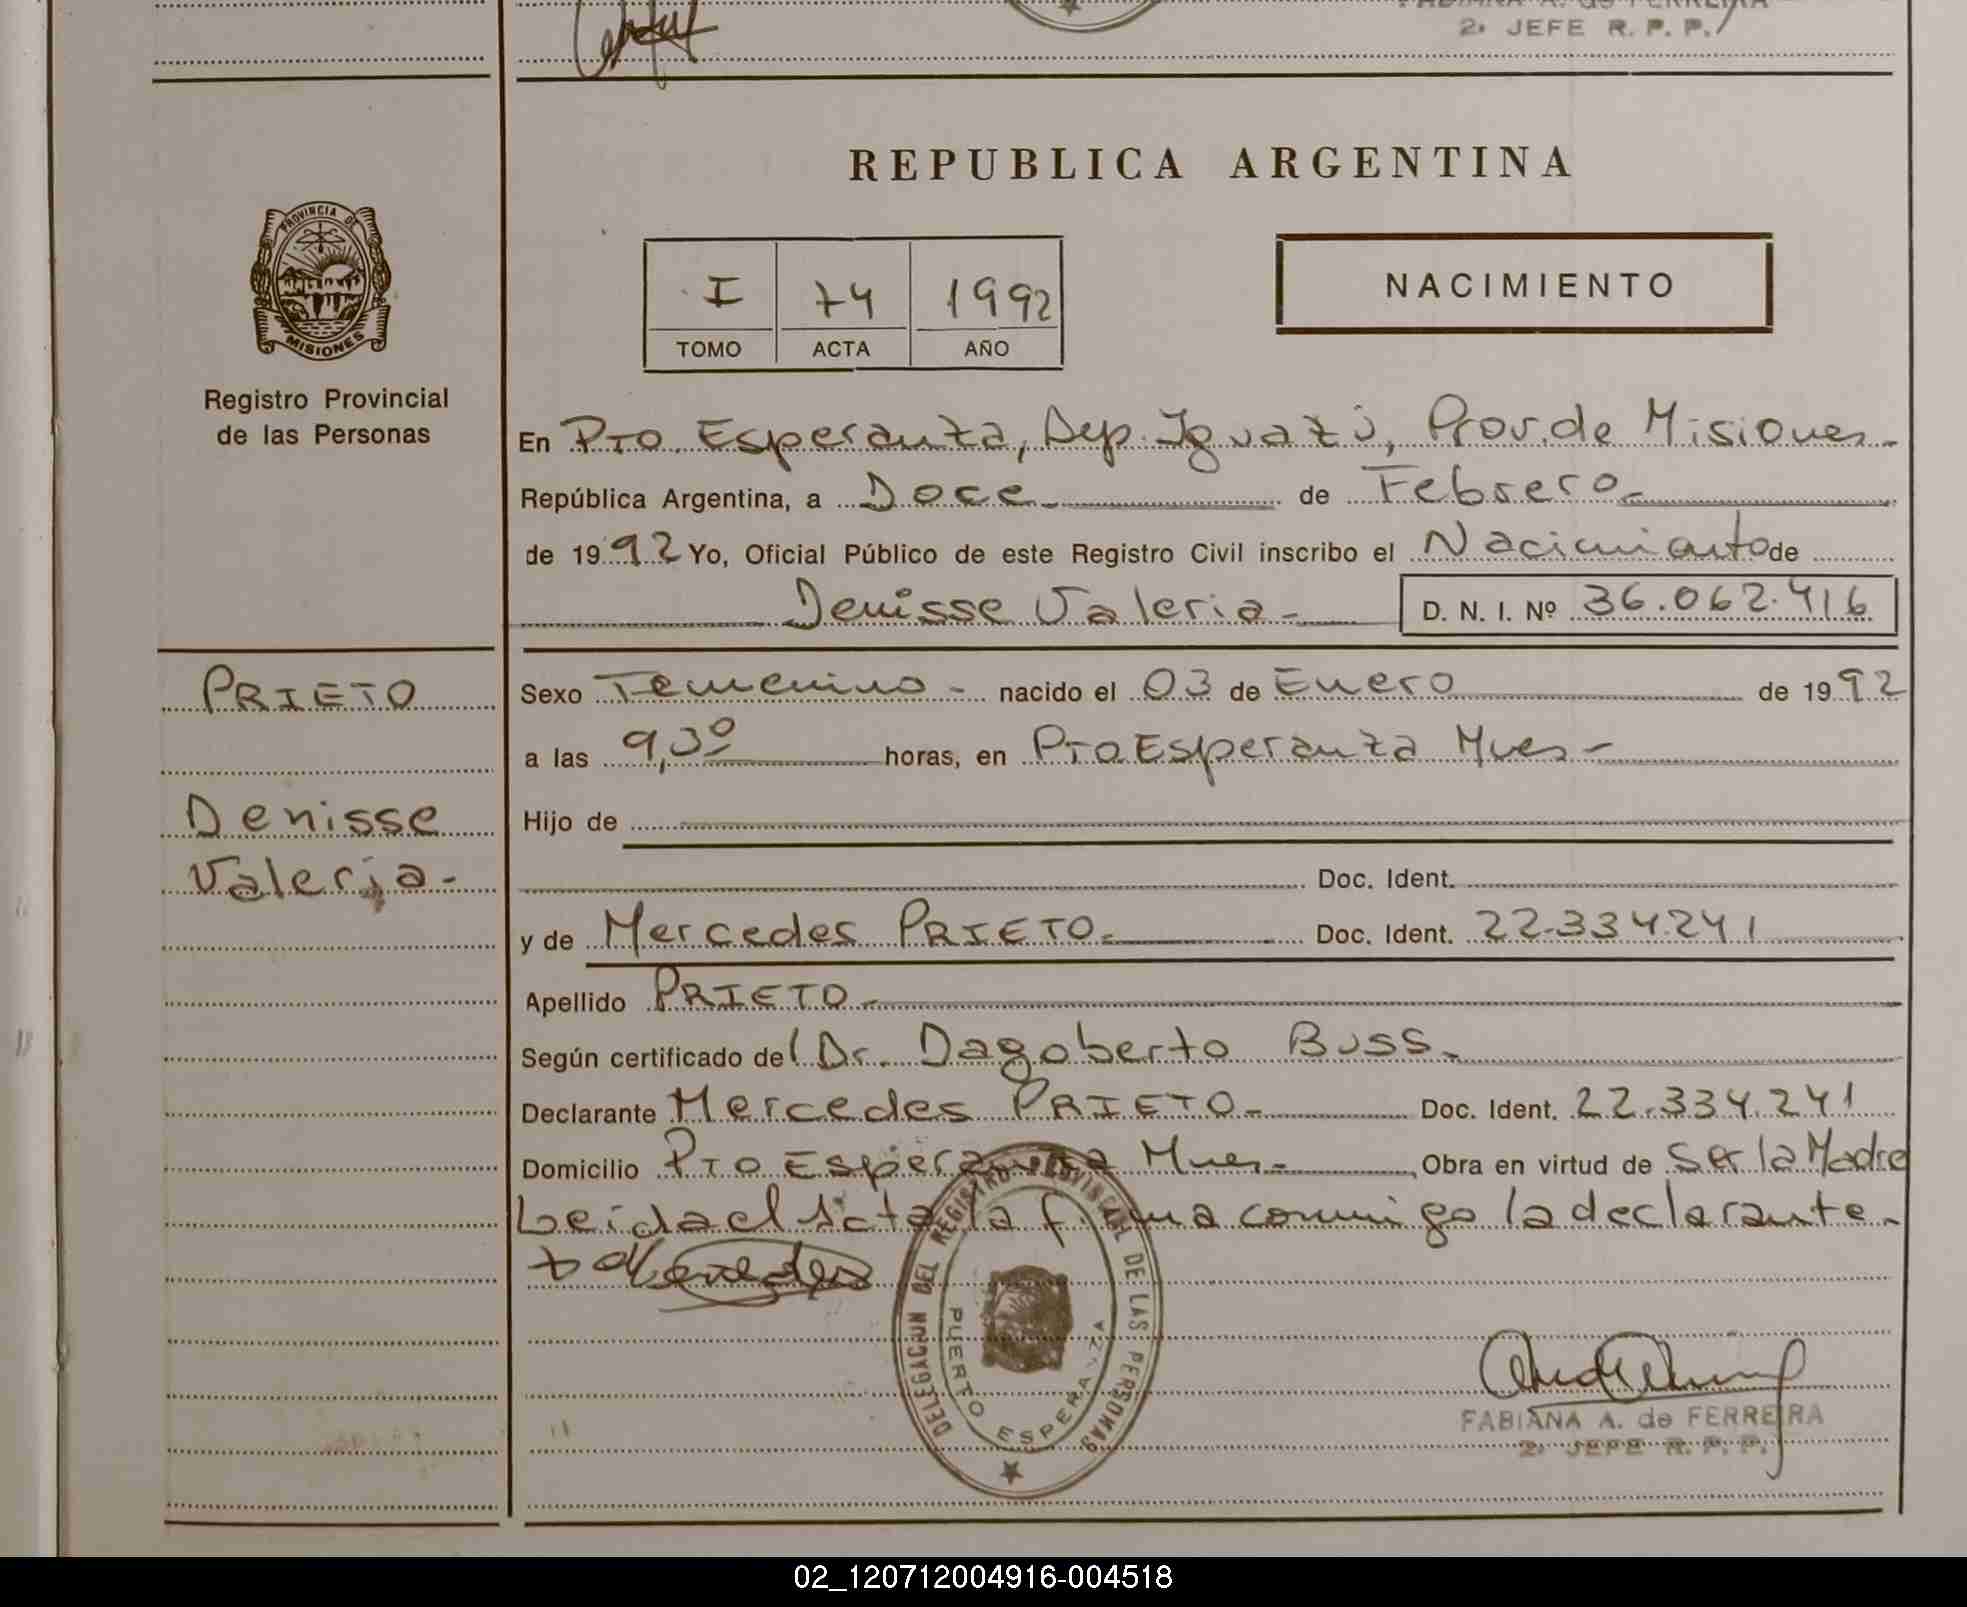 2º JEFE R. P. P.
REPUBLICA ARGENTINA
PROVINCIA DE
MISIONES
Registro Provincial
de las Personas
I 74 1992
TOMO ACTA AÑO
NACIMIENTO
En Pto. Esperanza, Dep. Iguazú, Prov. de Misiones-
República Argentina, a Doce- de Febrero-
de 1992 Yo, Oficial Público de este Registro Civil inscribo el Nacimiento de
Denisse Valeria- D. N. I. Nº 36.062.416
PRIETO
Denisse
Valeria-
Sexo Femenino- nacido el 03 de Enero de 1992
a las 9,30 horas, en Pto Esperanza Mnes-
Hijo de
Doc. Ident.
y de Mercedes PRIETO- Doc. Ident. 22.334.241
Apellido PRIETO-
Según certificado del Dr. Dagoberto Buss-
Declarante Mercedes PRIETO- Doc. Ident. 22.334.241
Domicilio Pto Esperanza Mnes- Obra en virtud de Ser la Madre
Leida el acta la firma conmigo la declarante-
DELEGACION DEL REGISTRO PROVINCIAL DE LAS PERSONAS
PUERTO ESPERANZA
FABIANA A. de FERREIRA
2º JEFE R. P. P.
02_120712004916-004518